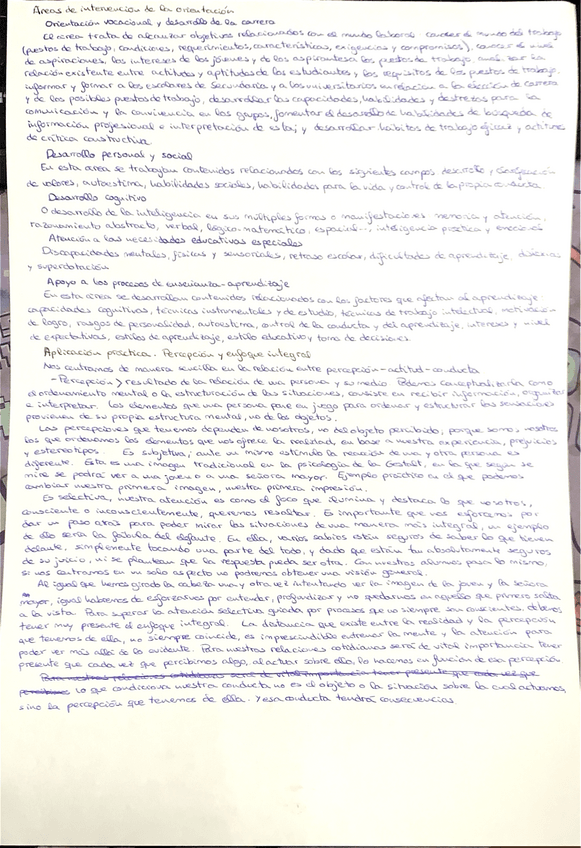 Áreas de intervención de la orientación
Orientación vocacional y desarrollo de la carrera
El área trata de alcanzar objetivos relacionados con el mundo laboral: conocer el mundo del trabajo
(puestos de trabajo, condiciones, requerimientos, características, exigencias y compromisos), conocer el nivel
de aspiraciones, los intereses de los jóvenes y de los aspirantes a los puestos de trabajo, analizar la
relación existente entre actitudes y aptitudes de los estudiantes y los requisitos de los puestos de trabajo,
informar y formar a los escolares de secundaria y a los universitarios en relación a la elección de carrera
y de los posibles puestos de trabajo, desarrollar las capacidades, habilidades y destrezas para la
comunicación y la convivencia en los grupos, fomentar el desarrollo de habilidades de búsqueda de
información profesional e interpretación de esta; y desarrollar hábitos de trabajo eficaz y actitudes
de crítica constructiva.
Desarrollo personal y social
En esta área se trabajan contenidos relacionados con los siguientes campos: desarrollo y
de valores, autoestima, habilidades sociales, habilidades para la vida y control de la propia conducta
Desarrollo cognitivo
O desarrollo de la inteligencia en sus múltiples formas o manifestaciones: memoria y atención,
razonamiento abstracto, verbal, lógico-matemático, espacial..., inteligencia práctica y emocional
Atención a las necesidades educativas especiales
Discapacidades mentales, físicas y sensoriales, retraso escolar, dificultades de aprendizaje, dislexias
y superdotación
Apoyo a los procesos de enseñanza-aprendizaje
En esta área se desarrollan contenidos relacionados con los factores que afectan al aprendizaje
capacidades cognitivas, técnicas instrumentales y de estudio, técnicas de trabajo intelectual, motivación
de logro, rasgos de personalidad, autoestima, control de la conducta y del aprendizaje, intereses y nivel
de expectativas, estilos de aprendizaje, estilo educativo y toma de decisiones.
Aplicación práctica. Percepción y enfoque integral
Nos centramos de manera sencilla en la relación entre percepción-actitud-conducta
- Percepción > resultado de la relación de una persona y su medio. Podemos conceptualizarla como
el ordenamiento mental o la estructuración de las situaciones, consiste en recibir información, organizar
e interpretar. Los elementos que una persona pone en juego para ordenar y estructurar las sensaciones
provienen de su propia estructura mental, no de los objetos.
Las percepciones que tenemos dependen de nosotros, no del objeto percibido, porque somos nosotros
los que ordenamos los elementos que nos ofrece la realidad, en base a nuestra experiencia, prejuicios
y estereotipos. Es subjetiva; ante un mismo estímulo la reacción de una y otra persona es
diferente. Esta es una imagen tradicional en la psicología de la Gestalt, en la que según se
mire se podrá ver a una joven o a una señora mayor. Ejemplo práctico en el que podemos
cambiar nuestra primera imagen, nuestra primera impresión.
Es selectiva, nuestra atención es como el foco que ilumina y destaca lo que nosotros,
consciente o inconscientemente, queremos resaltar. Es importante que nos esforcemos por
dar un paso atrás para poder mirar las situaciones de una manera más integral, un ejemplo
de ello sería la fábula del elefante. En ella, varios sabios están seguros de saber lo que tienen
delante, simplemente tocando una parte del todo, y dado que están tan absolutamente seguros
de su juicio, ni se plantean que la respuesta pueda ser otra. Con nuestros alumnos pasa lo mismo,
si nos centramos en un solo aspecto no podremos obtener una visión general.
Al igual que hemos girado la cabeza una y otra vez intentando ver la imagen de la joven y la señora
mayor, igual habremos de esforzarnos por entender, profundizar y no quedarnos en aquello que primero salta
a la vista. Para superar la atención selectiva guiada por procesos que no siempre son conscientes debemos
tener muy presente el enfoque integral. La distancia que existe entre la realidad y la percepción
que tenemos de ella, no siempre coincide, es imprescindible entrenar la mente y la atención para
poder ver más allá de lo evidente. Para nuestras relaciones cotidianas será de vital importancia tener
presente que cada vez que percibimos algo, al actuar sobre ello, lo hacemos en función de esa percepción.
Para nuestras relaciones cotidianas será de vital importancia tener presente que cada vez que
percibimos lo que condiciona nuestra conducta no es el objeto o la situación sobre la cual actuamos,
sino la percepción que tenemos de ella. Y esa conducta tendrá consecuencias.